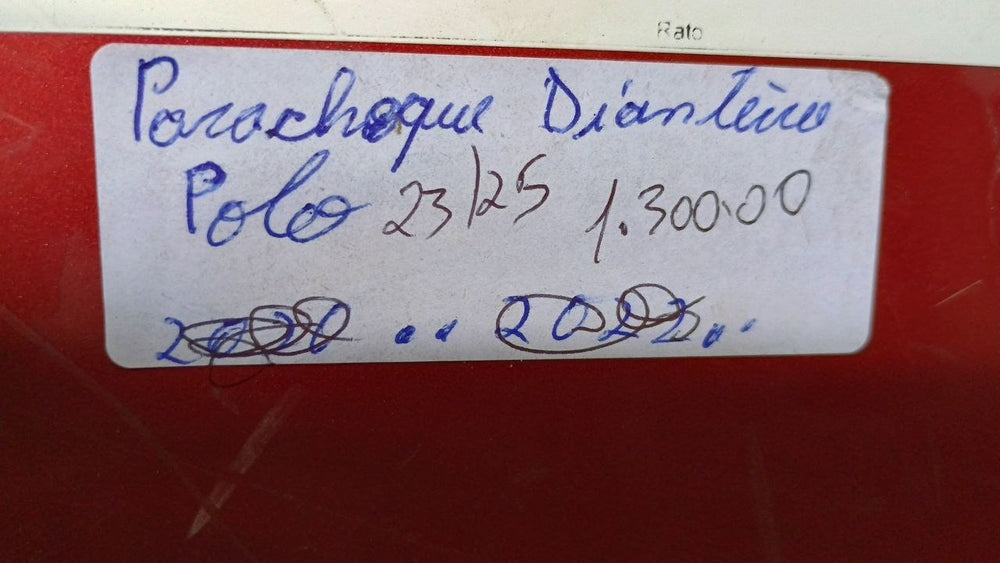 Ralo
Parachoque Dianteiro
Polo 23/25 1.300.00
2020 .. 2022..